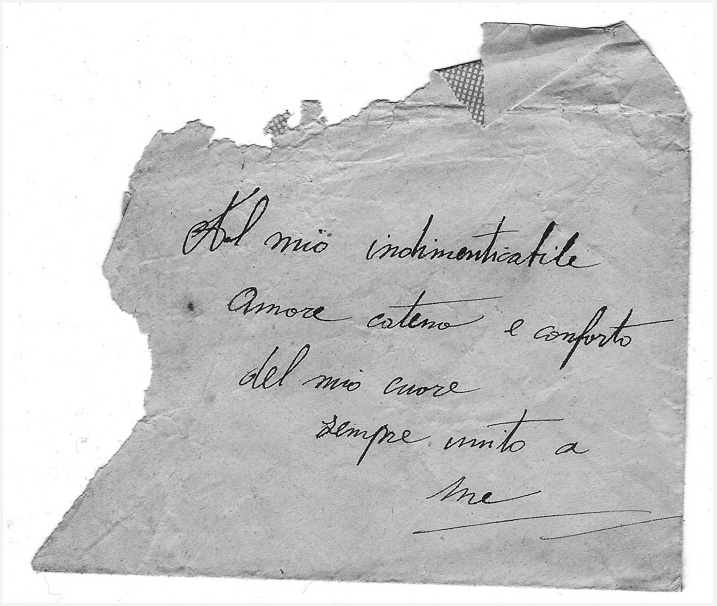 Al mio indimenticabile
amore cateno e conforto
del mio cuore
sempre unito a
me